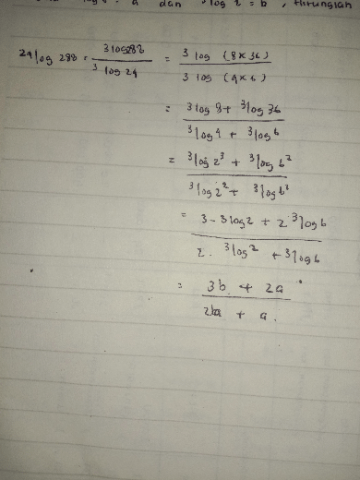 : a dan ³log 2 = b, Hitunglah
²⁴log 288 = ³log288 / ³log 24 = ³log (8 x 36) / ³log (4 x 6)
= ³log 8 + ³log 36 / ³log 4 + ³log 6
= ³log 2³ + ³log 6² / ³log 2² + ³log 6¹
= 3 - 3log2 + 2 ³log 6 / 2. ³log² + ³log 6
= 3b + 2a / 2ba + a.